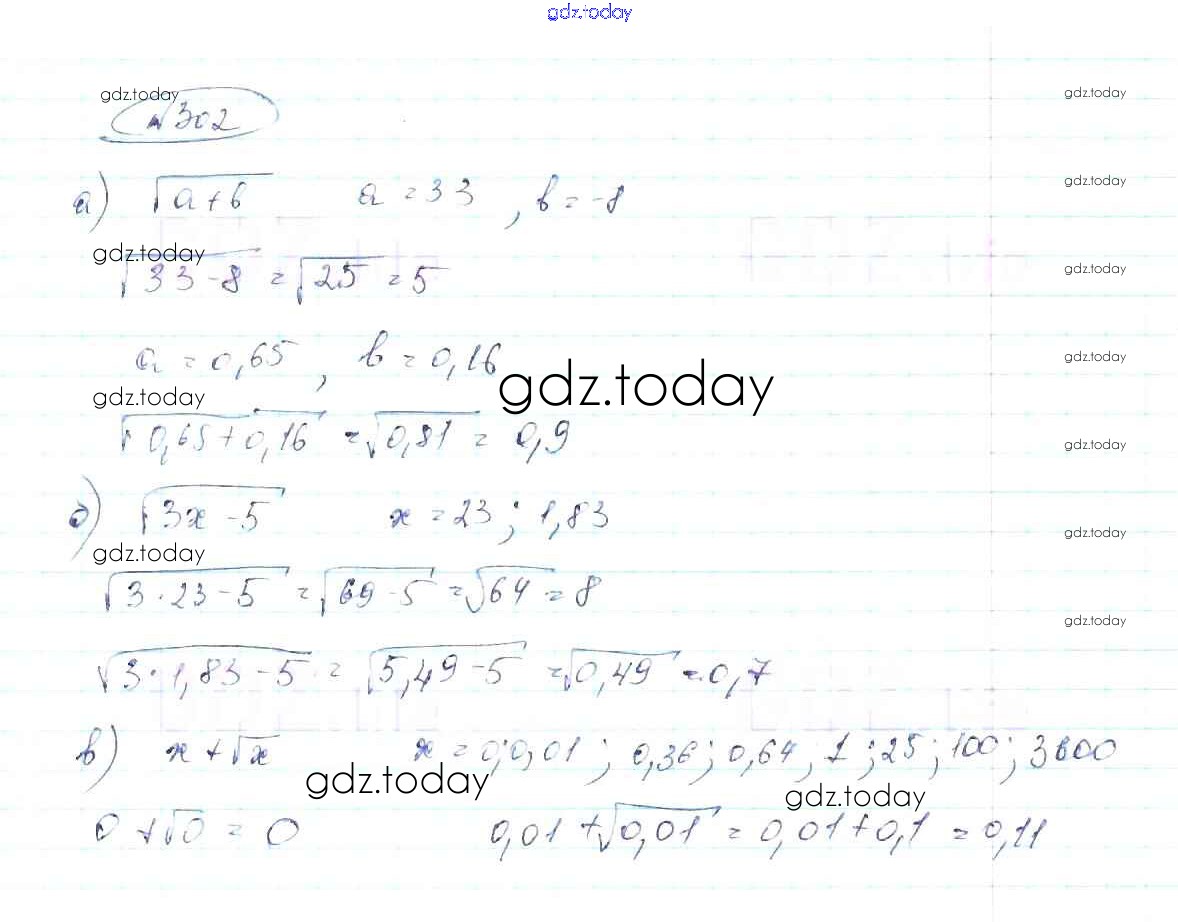 gdz.today
gdz.today
gdz.today
№302
а) √(a+b) a=33, b=-8
gdz.today
gdz.today
√(33-8) = √25 = 5
gdz.today
a=0,65, b=0,16
gdz.today
gdz.today
gdz.today
√(0,65+0,16) = √0,81 = 0,9
gdz.today
б) √(3x-5) x=23; 1,83
gdz.today
gdz.today
√(3·23-5) = √(69-5) = √64 = 8
gdz.today
√(3·1,83-5) = √(5,49-5) = √0,49 = 0,7
в) x+√x x=0; 0,01; 0,36; 0,64; 1; 25; 100; 3600
gdz.today
gdz.today
0+√0=0 0,01+√0,01=0,01+0,1=0,11